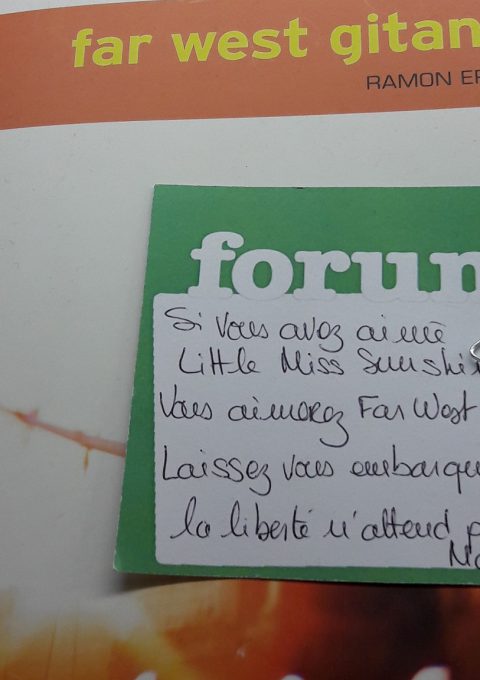 far west gitan
RAMON ER
forum
Si vous avez aimé
Little Miss Sunshi
Vous aimerez Far West
Laissez vous embarque
la liberté n'attend p